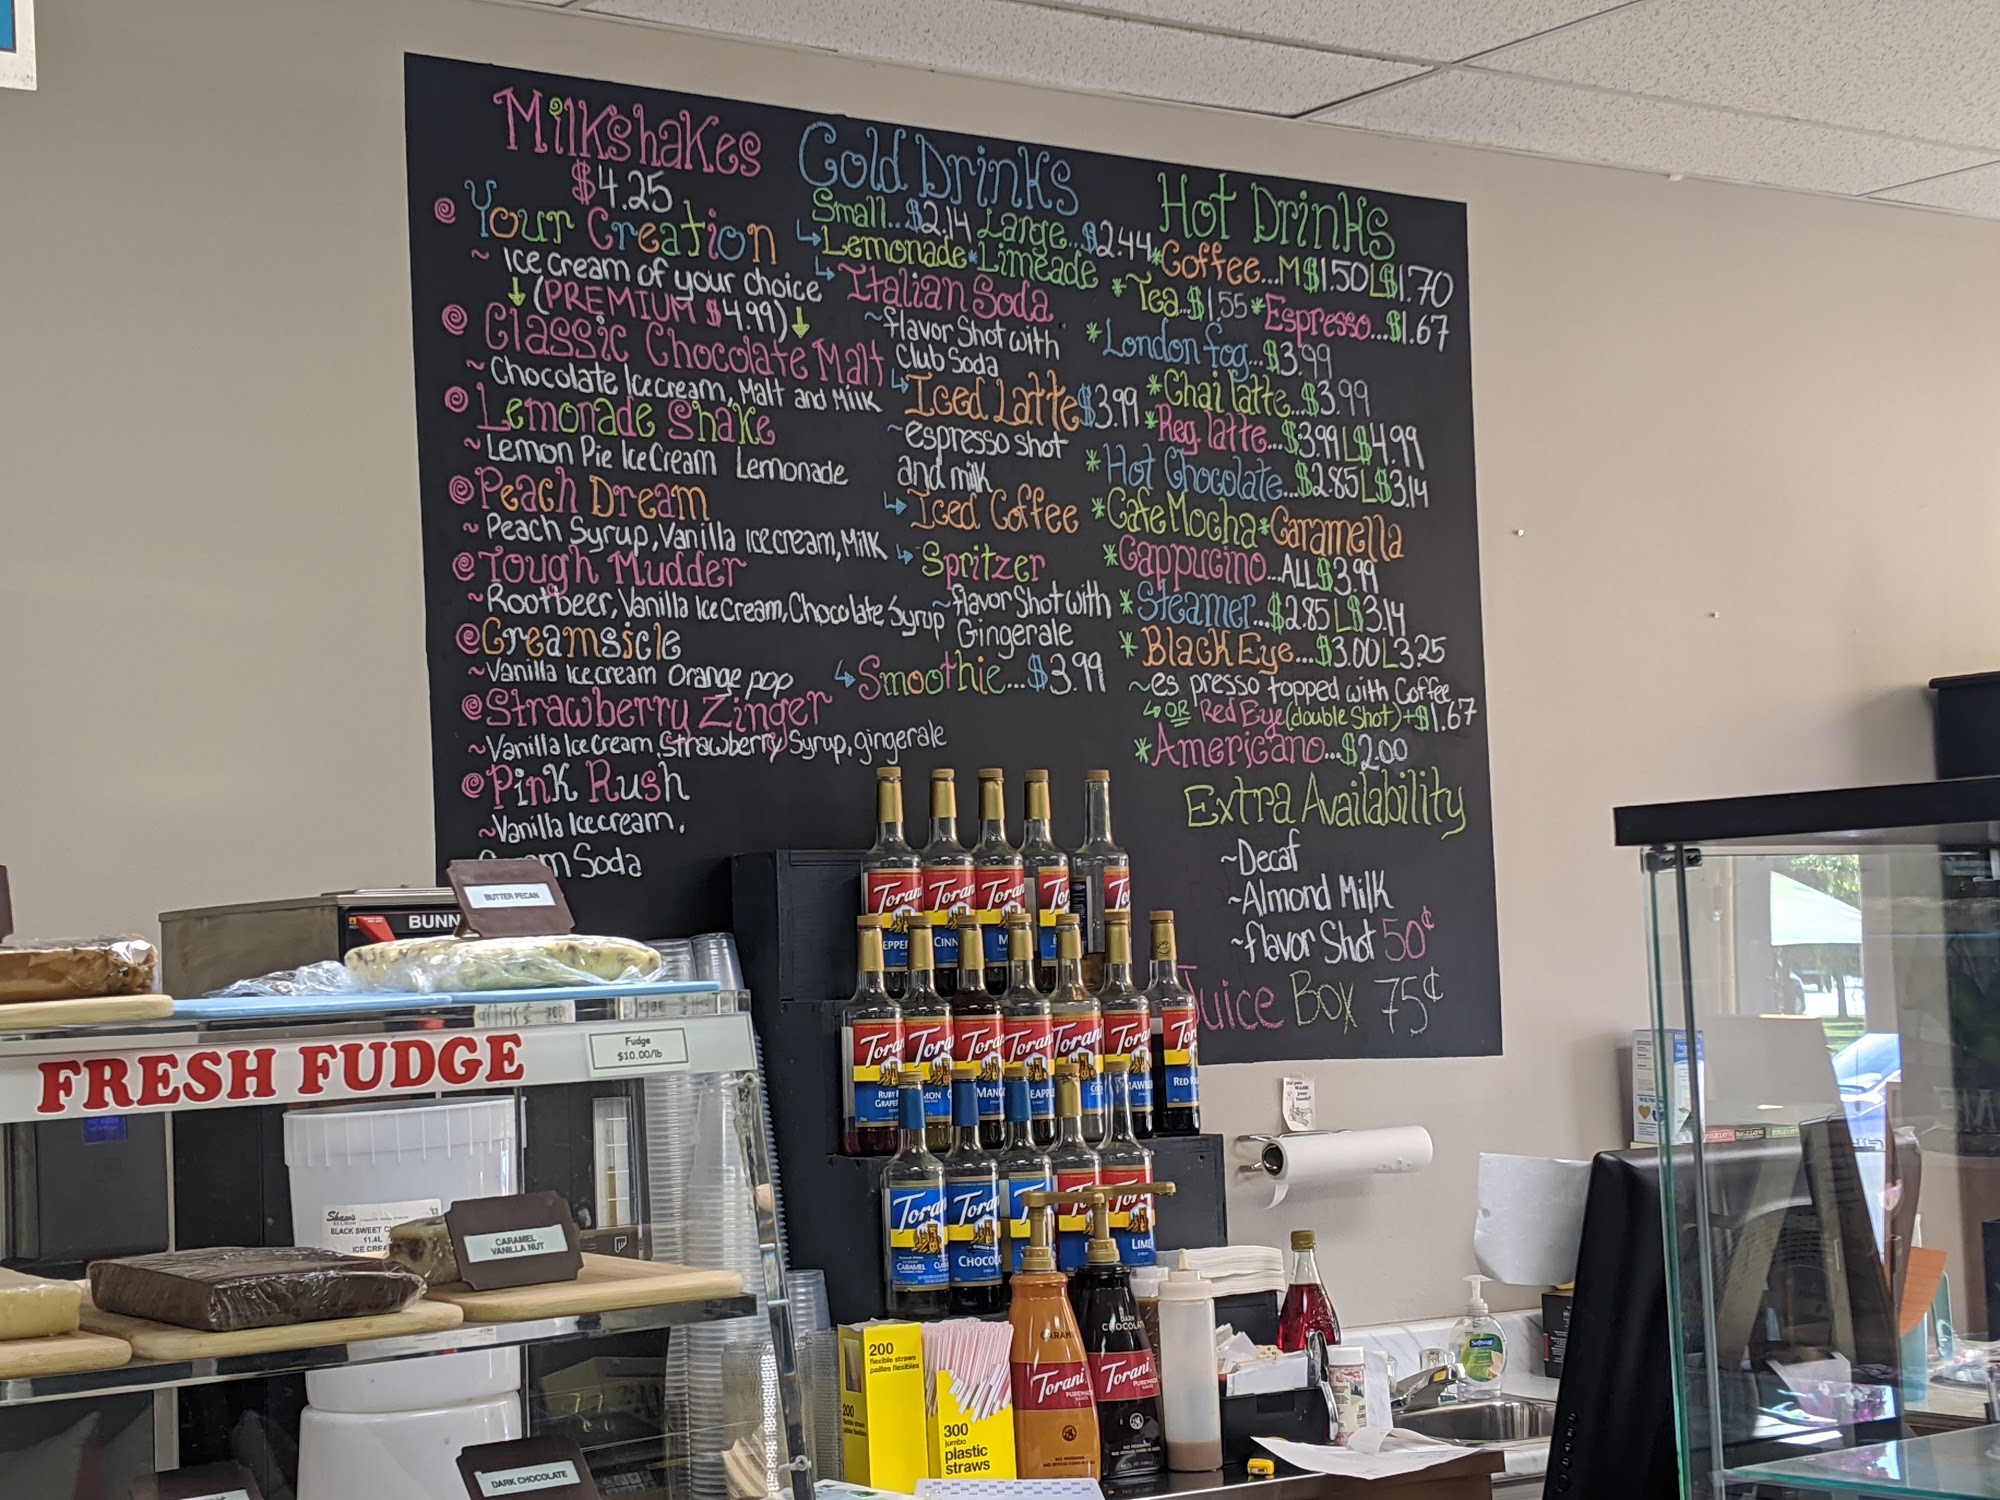 Milkshakes
$4.25
Your Creation
~ Ice cream of your choice
(PREMIUM $4.99)
Classic Chocolate Malt
~Chocolate Ice cream, Malt and Milk
Lemonade Shake
~Lemon Pie Ice Cream Lemonade
Peach Dream
~ Peach Syrup, Vanilla Ice cream, Milk
Tough Mudder
~Rootbeer, Vanilla Ice Cream, Chocolate Syrup
Creamsicle
~Vanilla Ice cream Orange pop
Strawberry Zinger
~Vanilla Ice cream, Strawberry Syrup, gingerale
Pink Rush
~Vanilla Ice cream,
Soda
Cold Drinks
Small...$2.14 Large...$2.44
Lemonade*Limeade
Italian Soda
~flavor Shot with
Club Soda
Iced Latte $3.99
~espresso shot
and milk
Iced Coffee
Spritzer
~flavor Shot with
Gingerale
Smoothie...$3.99
Hot Drinks
*Coffee...M$1.50L$1.70
*Tea...$1.55*Espresso...$1.67
*London fog...$3.99
*Chai latte...$3.99
*Reg. latte...$3.99L$4.99
*Hot Chocolate...$2.85L$3.14
*Cafe Mocha*Caramella
*Cappucino...ALL$3.99
*Steamer...$2.85L$3.14
*Black Eye...$3.00L3.25
~es presso topped with Coffee
OR Red Eye(double Shot)+$1.67
*Americano...$2.00
Extra Availability
~Decaf
~Almond Milk
~flavor Shot 50¢
Juice Box 75¢
BUTTER PECAN
BUNN
FRESH FUDGE
Fudge
$10.00/lb
Torani
Torani
Torani
MANG
RUBY
GRAPE
STRAWBE
RED
Torani
Torani
CARAMEL
CHOCOL
LIME
Shaw's
BLACK SWEET
11.4L
ICE CREA
CARAMEL
VANILLA NUT
DARK CHOCOLATE
200
flexible straws
pailles flexibles
200
300
jumbo
plastic
straws
CARAM
Torani
PUREMADE
DARK
CHOCOLATE
Torani
PUREMADE
Softsoap